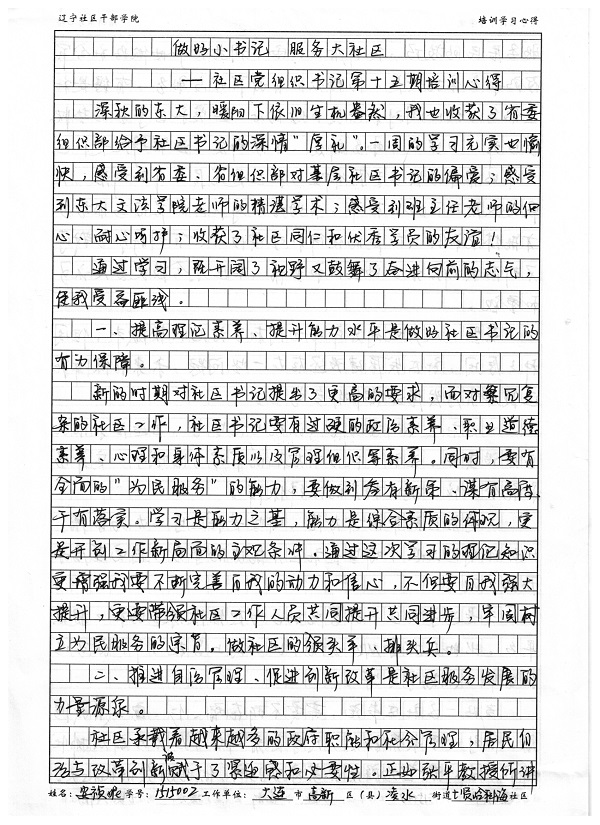 辽宁社区干部学院 培训学习心得
做好小书记 服务大社区
——社区党组织书记第十五期培训心得
深秋的东大，暖阳下依旧生机盎然，我也收获了省委
组织部给予社区书记的深情"厚礼"。一周的学习充实也愉
快，感受到省委、省组织部对基层社区书记的偏爱；感受
到东大文法学院老师的精湛学术；感受到班主任老师的细
心、耐心呵护；收获了社区同仁和优秀学员的友谊！
通过学习，既开阔了视野又鼓舞了奋进向前的志气，
使我受益匪浅。
一、提高理论素养、提升能力水平是做好社区书记的
有力保障。
新的时期对社区书记提出了更高的要求，面对繁冗复
杂的社区工作，社区书记要有过硬的政治素养、职业道德
素养、心理和身体素质以及管理组织等素养。同时，要有
全面的"为民服务"的能力，要做到唇有新策、谋有高度、
干有落实。学习是能力之基，能力是综合素质的体现，更
是开创工作新局面的主观条件。通过这次学习的理论知识
更增强我要不断完善自我的动力和信心，不但要自我强大
提升，更要带领社区工作人员共同提升共同进步，牢固树
立为民服务的宗旨。做社区的领头羊、排头兵。
二、推进自治管理、促进创新改革是社区服务发展的
力量源泉。
社区承载着越来越多的政府职能和社会管理，居民们
参与改革创新赋于了紧迫感和必要性。正如张平教授所讲
姓名： 学号：1515002 工作单位：大连市高新区（县）凌水街道七贤哈科海社区